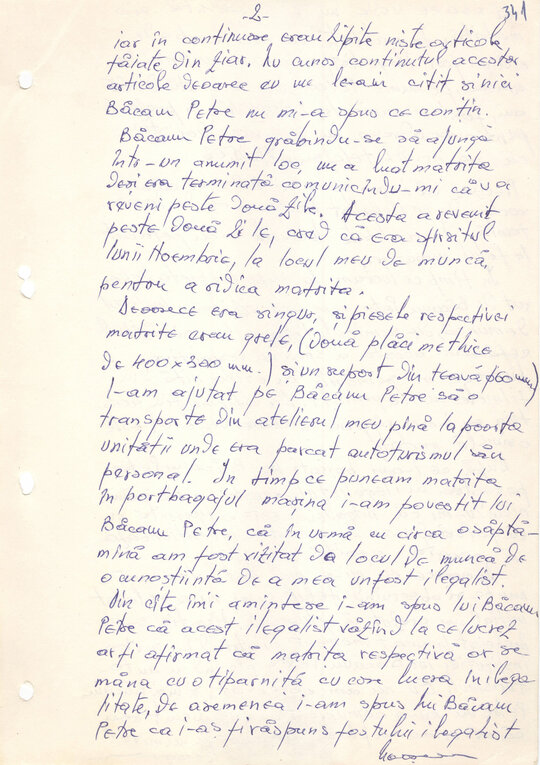 -2-
341
iar în continuare erau lipite niște articole
tăiate din ziar. Nu cunos continutul acestor
articole deoarece eu nu leram citit și nici
Băcanu Petre nu mi-a spus ce conțin.
Băcanu Petre grăbindu-se să ajungă
într-un anumit loc, nu a luat matrița
deși era terminată comunicîndu-mi că va
reveni peste două zile. Acesta a revenit
peste două zile, cred că era sfîrsitul
lunii Noembrie, la locul meu de muncă,
pentru a ridica matrita.
Deoarece era singur, și piesele respectivei
matrite erau grele, (două plăci metlice
de 400x300 mm.) și un suport din teavă φ60mm)
l-am ajutat pe Băcanu Petre să o
transporte din atelierul meu pînă la poarta
unității unde era parcat autoturismul său
personal. În timp ce puneam matrita
în portbagajul masina i-am povestit lui
Băcanu Petre, că în urmă cu circa o săptă-
mînă am fost vizitat da locul de muncă de
o cunostiintă de a mea un fost ilegalist.
Din cîte îmi amintesc i-am spus lui Băcanu
Petre că acest ilegalist văzînd la ce lucrez
ar fi afirmat că matrita respectivă ar se-
măna cu o tiparniță cu care lucra în ilega
litate, de asemenea i-am spus lui Băcanu
Petre ca i-as fi răspuns fostului ilegalist